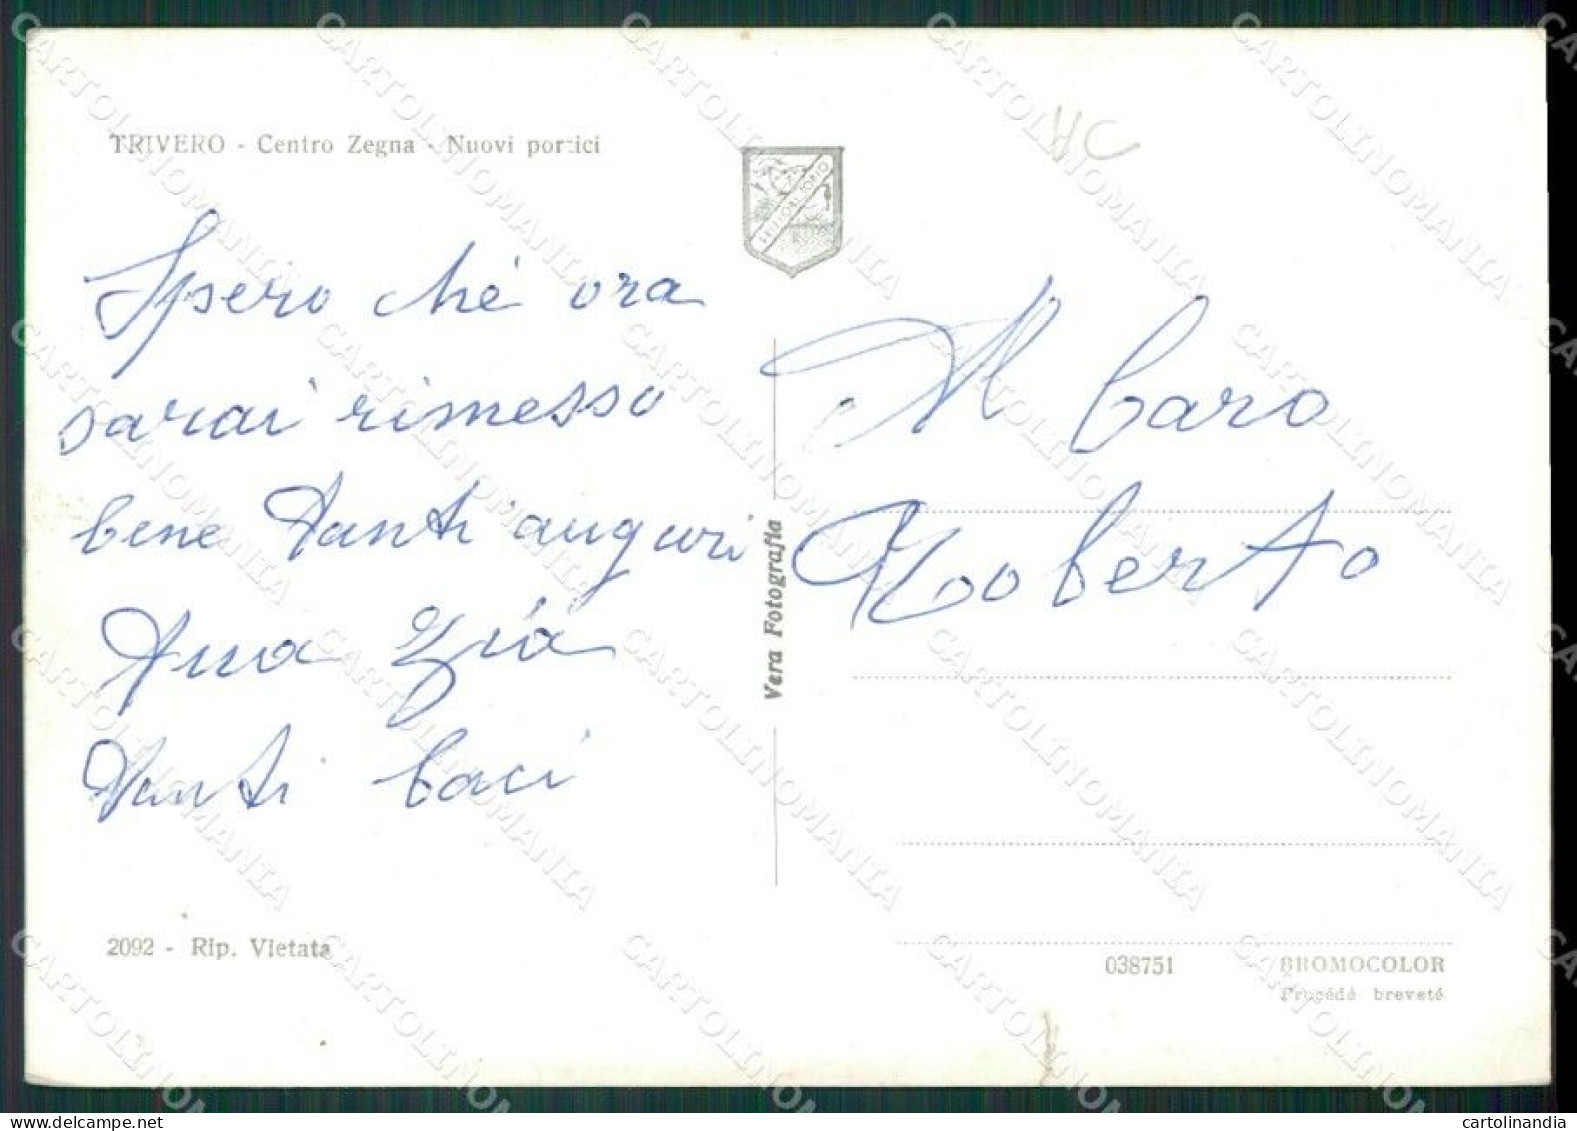 TRIVERO - Centro Zegna - Nuovi portici
HC
Spero che ora
sarai rimesso
bene tanti auguri
tua zia
tanti baci
Al caro
Roberto
Vera Fotografia
2092 - Rip. Vietata
038751
BROMOCOLOR
Procédé breveté
CARTOLINOMANIA
cartolinandia